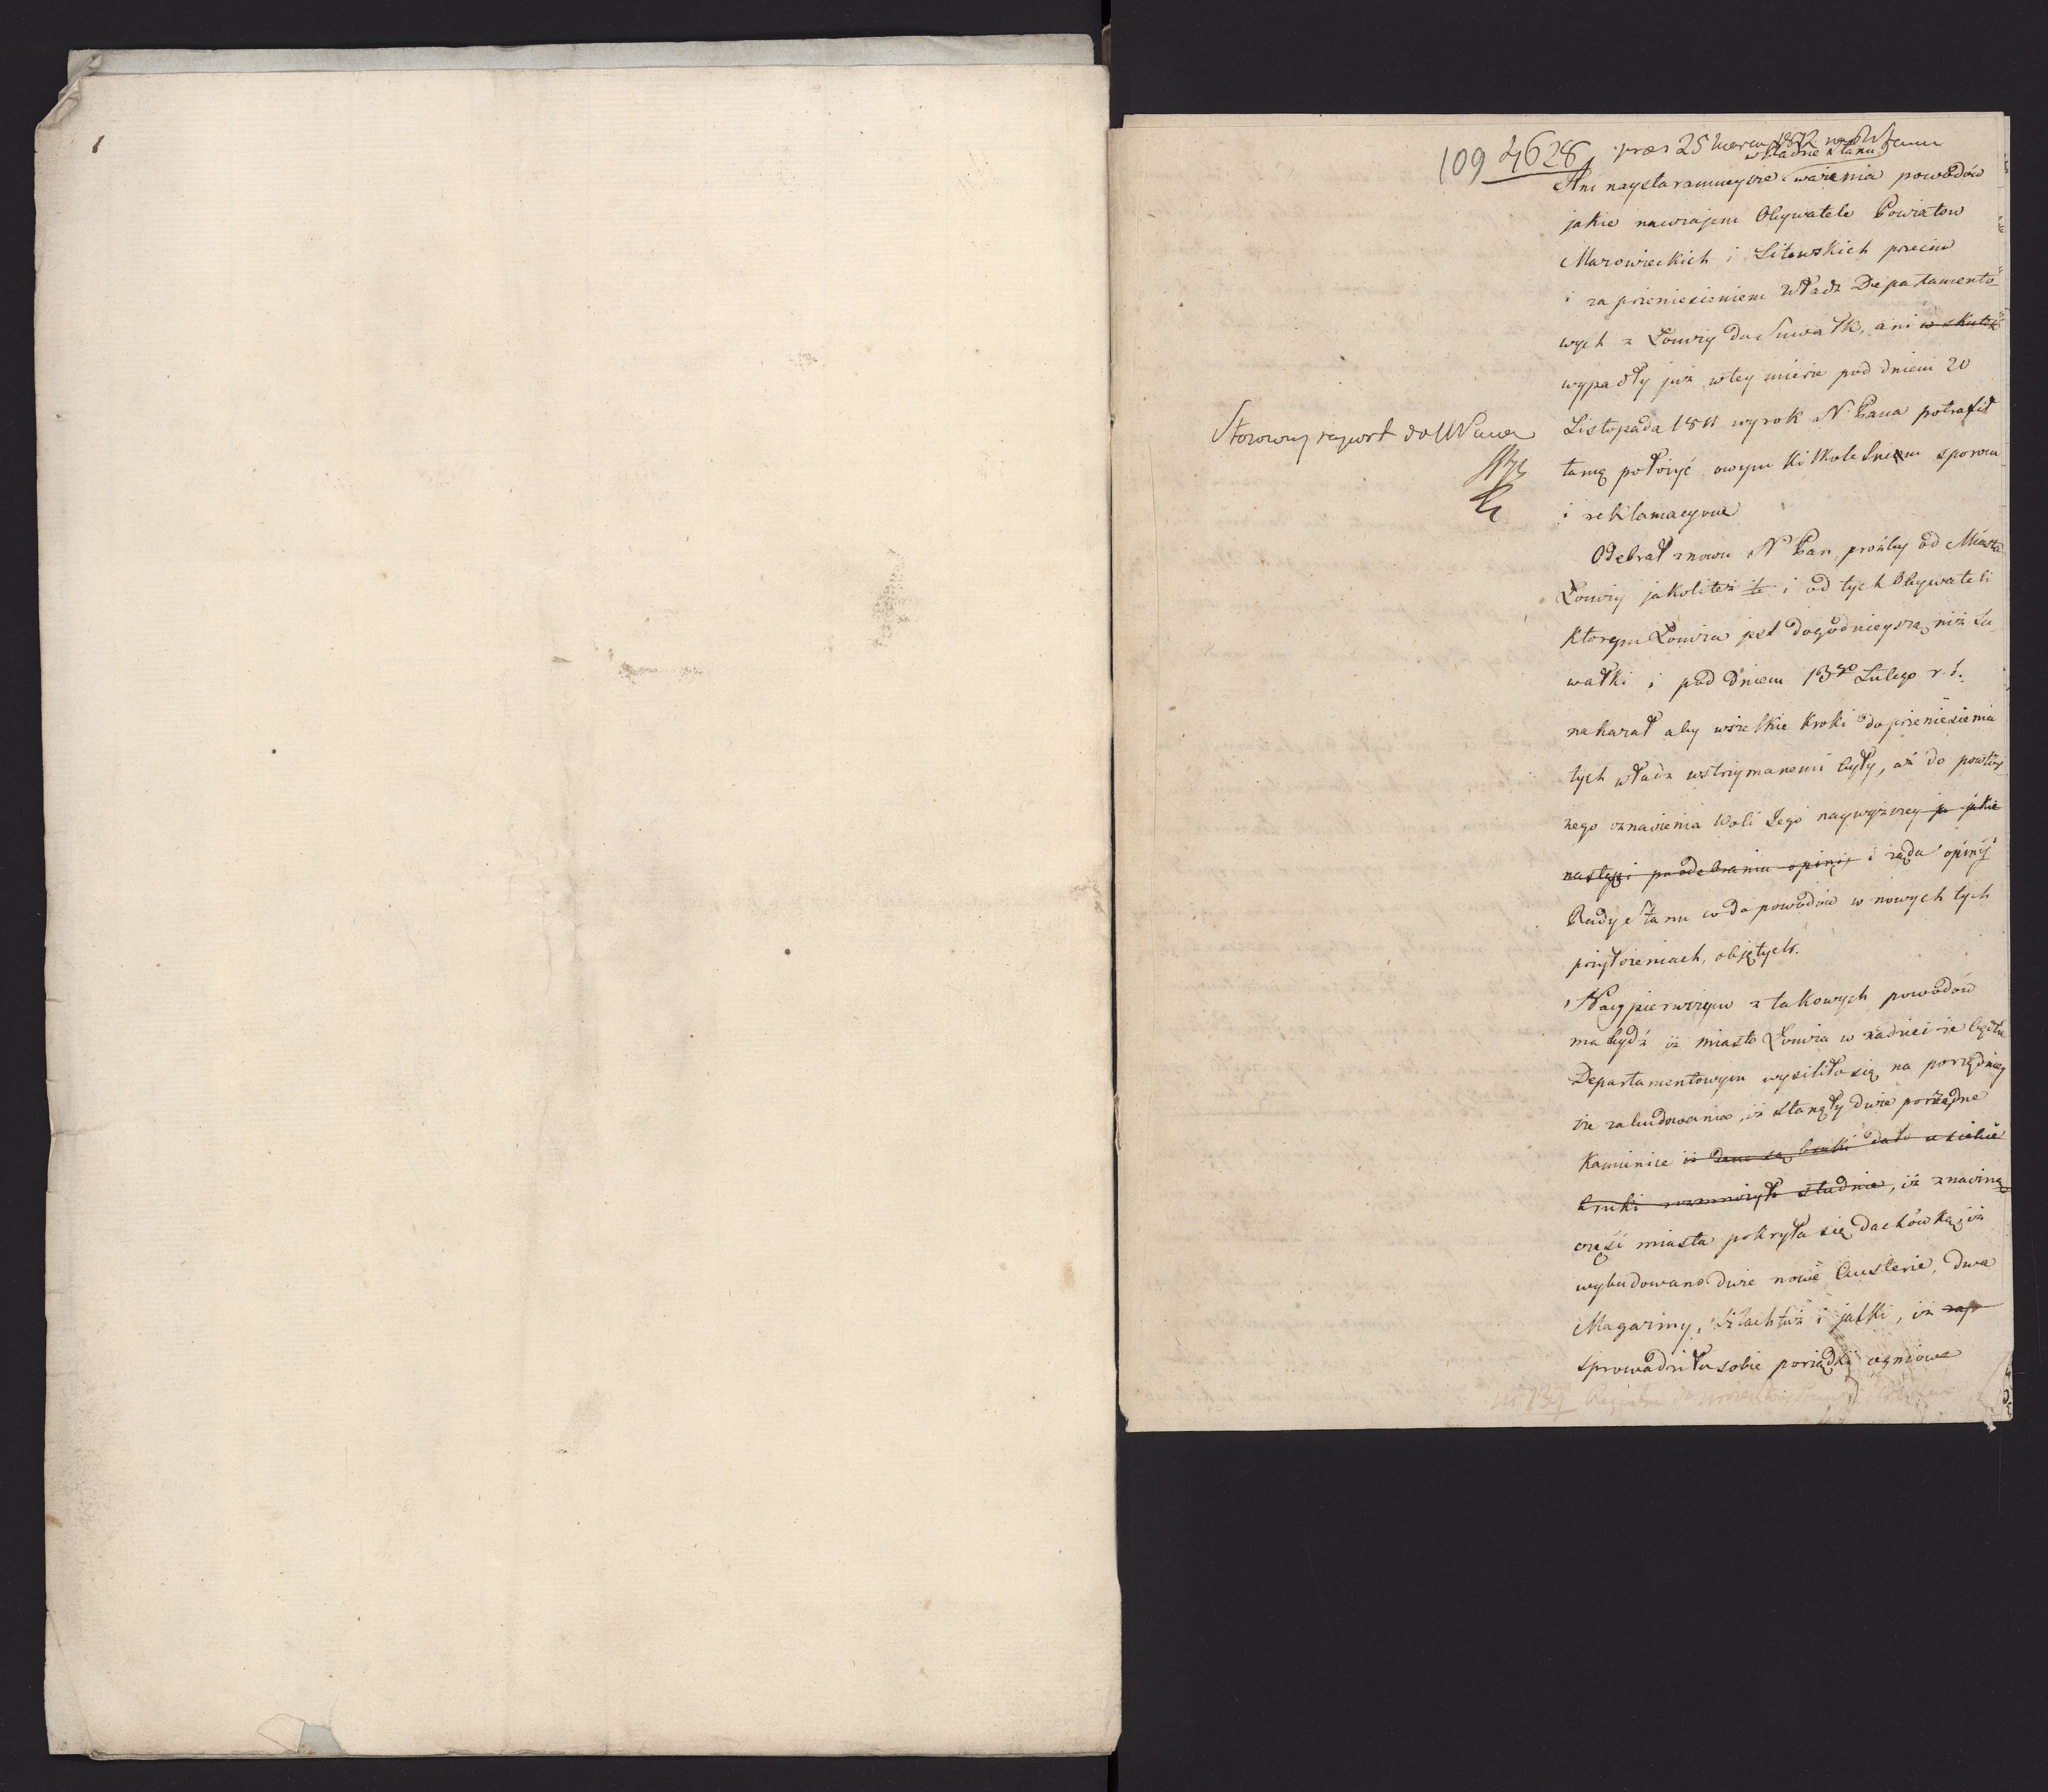 109 4628 præs 25 Czerw 1812
w Radzie Stanu
Ani naystarannieysze ważenia powodów
jakie nawzajem Obywatele Powiatow
Mazowieckich i Litewskich przeciw
i za przeniesieniem Władz Departamento-
wych z Łomży do Suwałk, ani w skutek
wypadły już w tey mierze pod dniem 20
Listopada 1811 wyrok N. Pana potrafił
tamę położyć owym kilkoletnim sporom
i reklamacyom
Stosowny raport do N Pana
Odebrał znowu N Pan proźby od Miasta
Łomży jakoliteż te i od tych Obywateli
którym Łomża jest dogodnieyszą niż Su-
wałki i pod dniem 13go Lutego r. b.
nakazał aby wszelkie kroki do przeniesienia
tych władz wstrzymanemi były, aż do powtór-
nego oznaienia Woli Jego naywyższey jakie
nastąpi po odebraniu opinij i żąda opinij
Rady Stanu co do powodów w nowych tych
przełożeniach, objętych.
Naypierwszym z takowych powodów
ma bydź iż miasto Łomża w nadziei że będzie
Departamentowym wysiliło się na porządniey-
sze zabudowania, iż stanęły dwie porządne
Kamienice iż dane są bruki dało u siebie
bruki rozmnożyło studnie, iż znaczna
część miasta pokryła się dachówką, iż
wybudowano dwie nowe Austerie, dwa
Magazyny, szlachtuz i jatki, iż zap
sprowadziła sobie porządki ogniowe